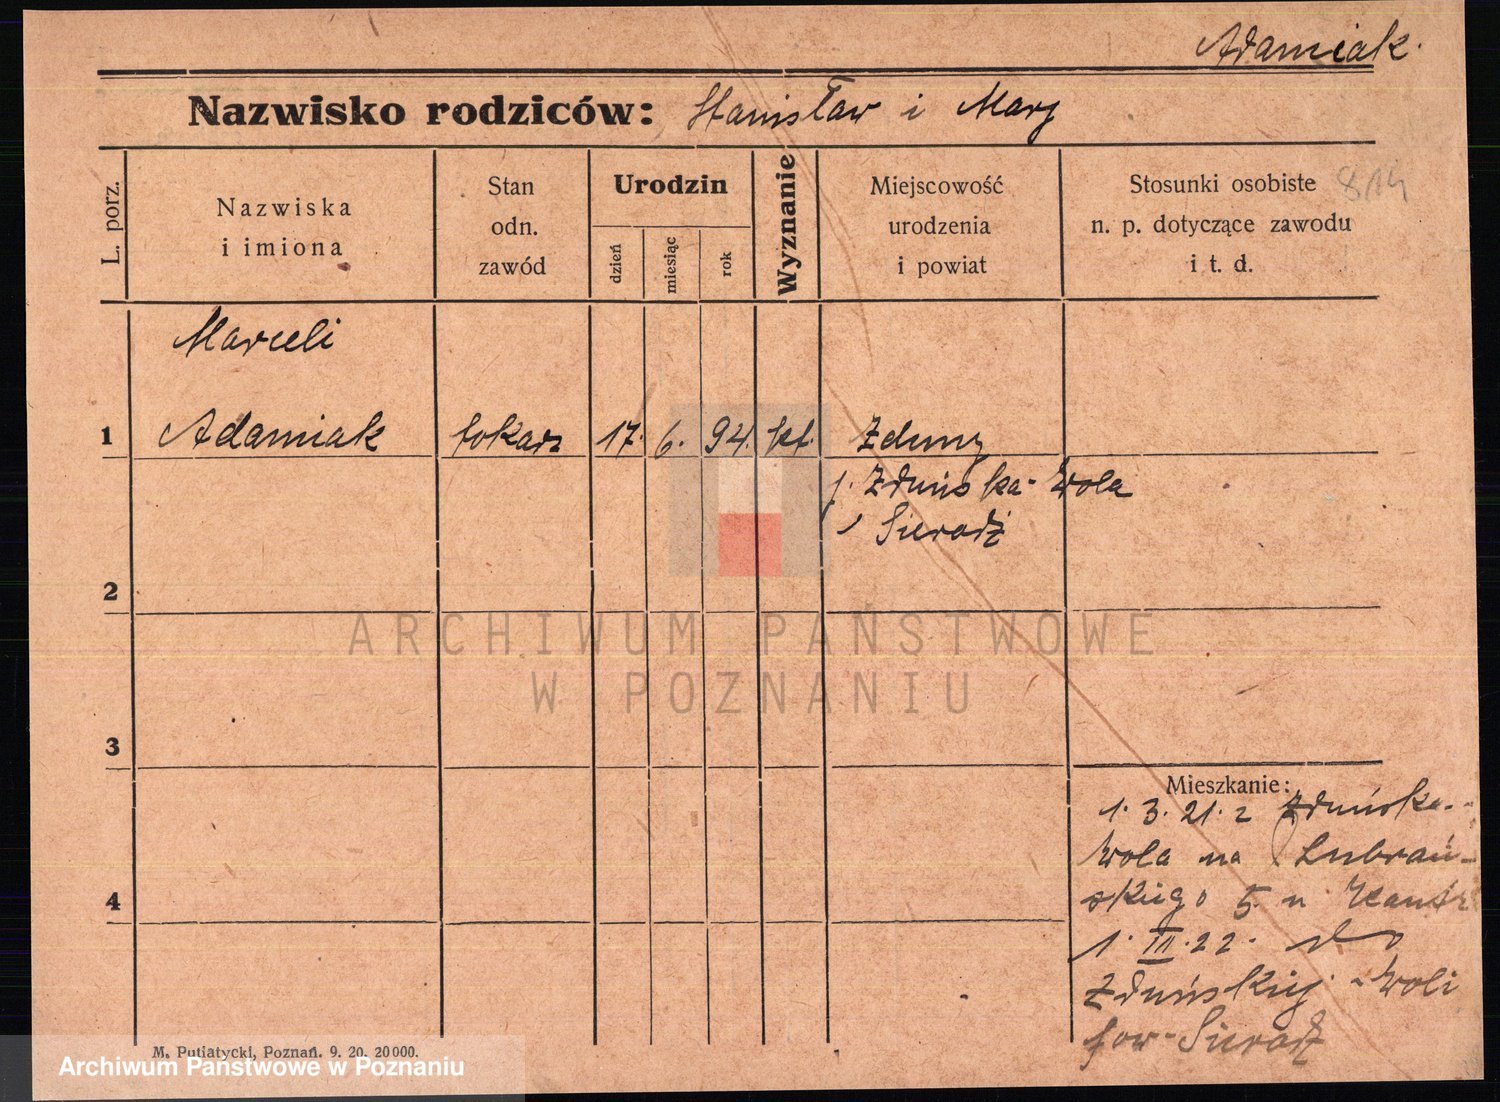 Adamiak.
Nazwisko rodziców: Stanisław i Mary
L. porz.
Nazwiska
i imiona
Stan
odn.
zawód
Urodzin
dzień
miesiąc
rok
Wyznanie
Miejscowość
urodzenia
i powiat
Stosunki osobiste
n. p. dotyczące zawodu
i t. d.
814
Marceli
1 Adamiak tokarz 17. 6. 94. kt. Zduny
Zduńska-Wola
Sieradź
2
3
4
Mieszkanie:
1. 3. 21. z Zduńska-
Wola na Lubrań-
skiego 5 u
1. III. 22. do
Zduńskiej-Woli
pow-Sieradź
M. Putiatycki, Poznań. 9. 20. 20000.
ARCHIWUM PAŃSTWOWE
W POZNANIU
Archiwum Państwowe w Poznaniu